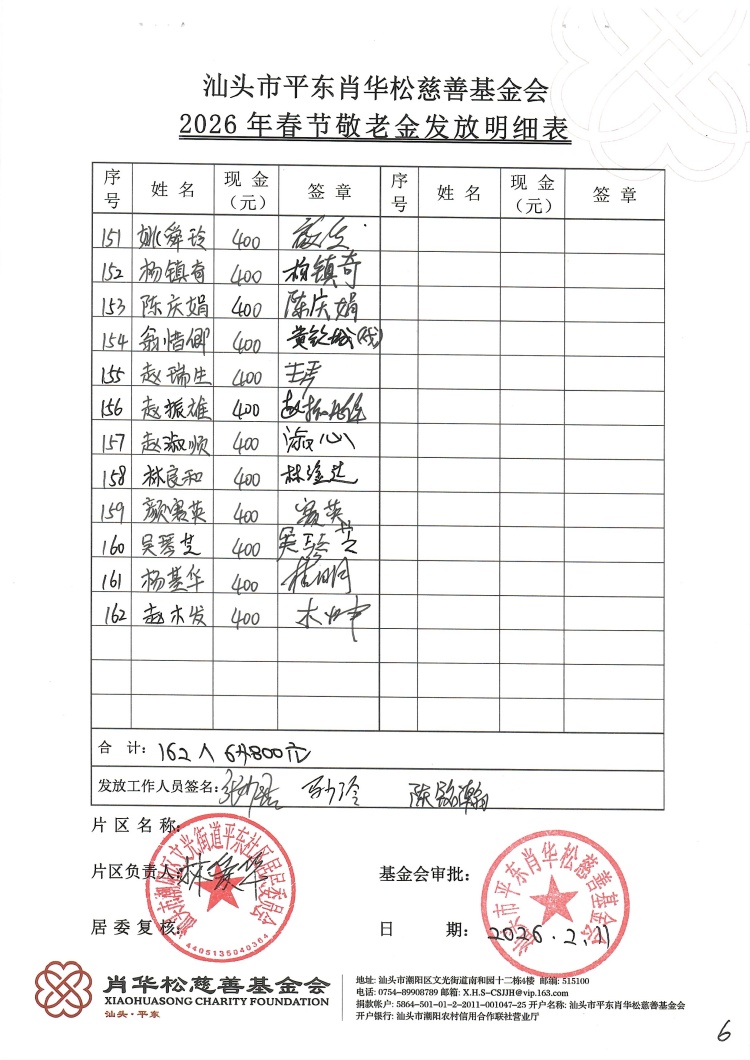 汕头市平东肖华松慈善基金会
2026 年春节敬老金发放明细表
序号 姓 名 现 金（元） 签 章 序号 姓 名 现 金（元） 签 章
151 姚舜玲 400
152 杨镇奇 400 杨镇奇
153 陈庆娟 400 陈庆娟
154 翁惜卿 400 黄 (代)
155 赵瑞生 400
156 赵振雄 400 赵振雄
157 赵淑顺 400 淑心
158 林良和 400 林
159 颜赛英 400 赛英
160 吴琴芝 400 吴 芝
161 杨基华 400
162 赵木发 400 木
合 计：162人 6万4800元
发放工作人员签名： 陈
片 区 名 称：
片区负责人： 林 华
基金会审批：
居 委 复 核：
日 期：2026.2.11
汕头市潮阳区文光街道平东社区居民委员会
4405135040364
汕头市平东肖华松慈善基金会
肖华松慈善基金会
XIAOHUASONG CHARITY FOUNDATION
汕头·平东
地址: 汕头市潮阳区文光街道南和园十二栋4楼 邮编: 515100
电话: 0754-89908789 邮箱: X.H.S-CSJJH@vip.163.com
捐款帐户: 5864-501-01-2-2011-001047-25 开户名称: 汕头市平东肖华松慈善基金会
开户银行: 汕头市潮阳农村信用合作联社营业厅
6